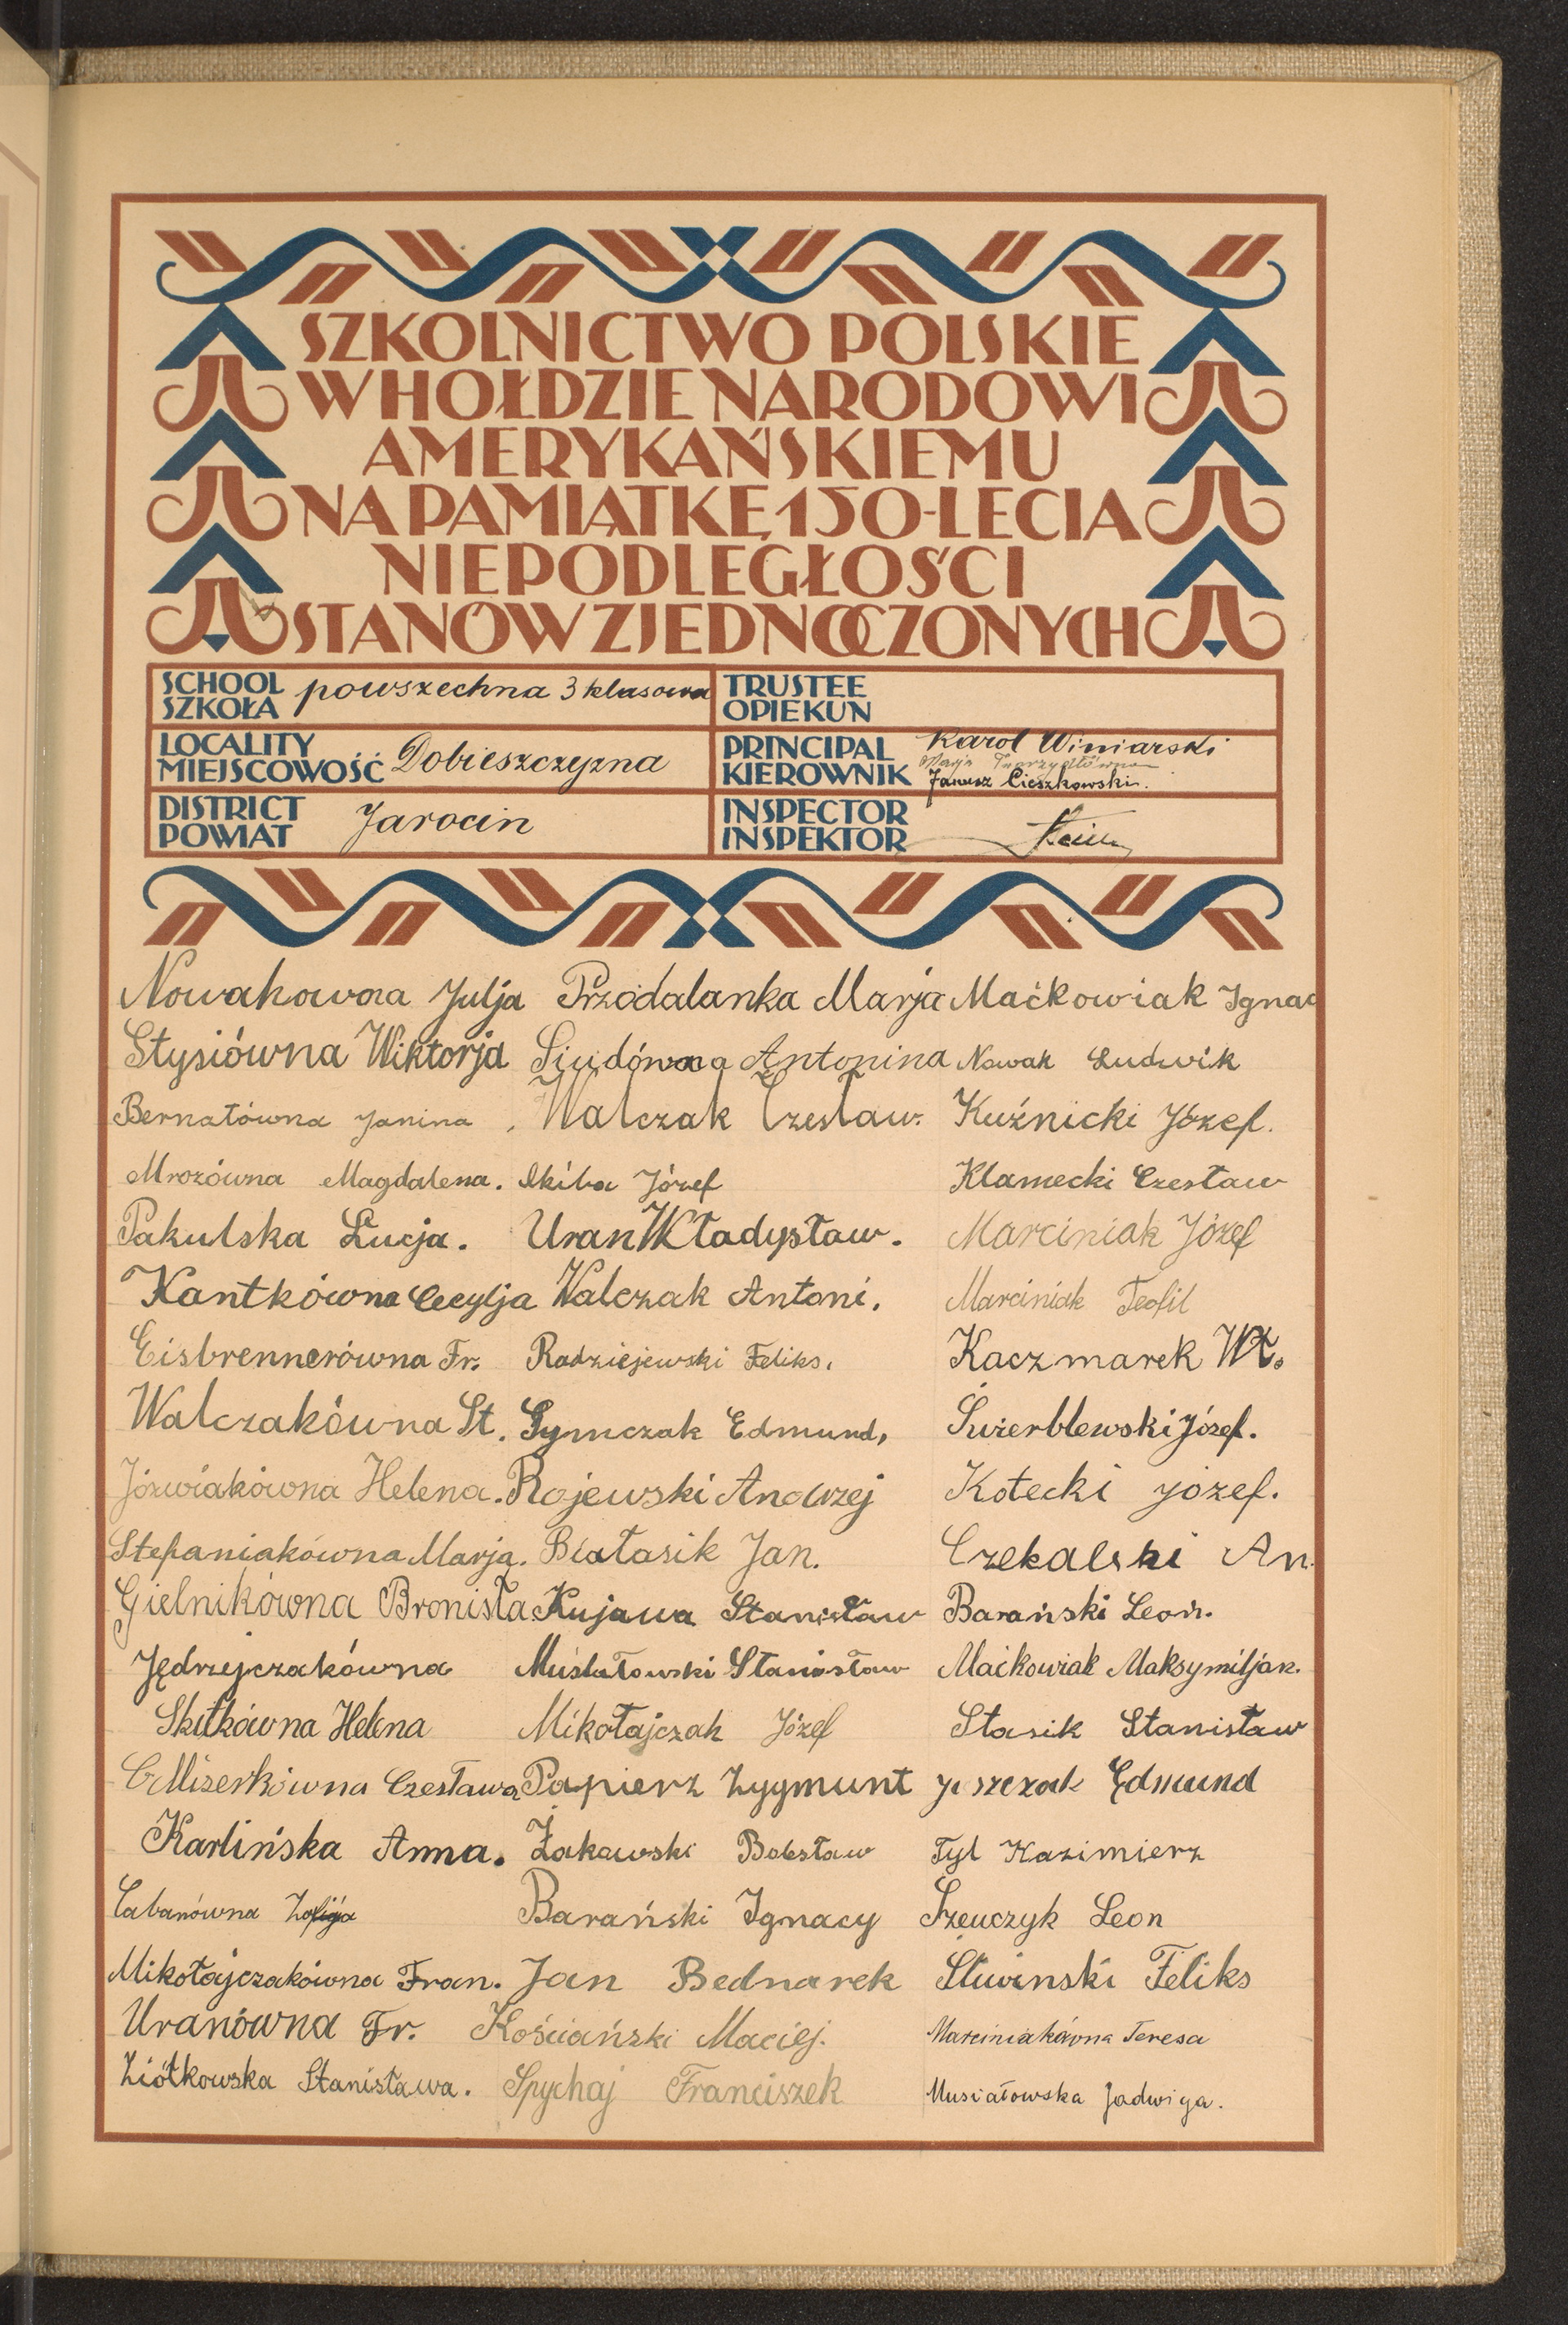 SZKOLNICTWO POLSKIE
W HOŁDZIE NARODOWI
AMERYKAŃSKIEMU
NA PAMIĄTKĘ 150-LECIA
NIEPODLEGŁOŚCI
STANÓW ZJEDNOCZONYCH
SCHOOL
SZKOŁA powszechna 3 klasowa
TRUSTEE
OPIEKUN
LOCALITY
MIEJSCOWOŚĆ Dobieszczyzna
PRINCIPAL
KIEROWNIK Karol Winiarski
Marja
Janusz Cieszkowski.
DISTRICT
POWIAT Jarocin
INSPECTOR
INSPEKTOR
Nowakowna Julja Przodalanka Marja Maćkowiak Ignac
Stysiówna Wiktorja Siudówna Antonina Nowak Ludwik
Bernatówna Janina, Walczak Czesław. Kuźnicki Józef.
Mrozówna Magdalena. Skiba Józef Klamecki Czesław
Pakulska Łucja. Uran Władysław. Marciniak Józef
Kantkówna Cecylja Walczak Antoni. Marciniak Teofil
Eisbrennerówna Fr. Radziejewski Feliks. Kaczmarek Wł.
Walczakówna St. Symczak Edmund, Świerblewski Józef.
Józwiakówna Helena. Rojewski Andrzej Kotecki józef.
Stefaniakówna Marja. Białasik Jan. Czekalski An.
Gielnikówna Bronisła. Kujawa Stanisław Barański Leon.
Jędrzejczakówna Stanisław Maćkowiak Maksymiljan.
Skitkówna Helena Mikołajczak Józef Stasik Stanisław
Miserkówna Czesława Papierz Zygmunt Edmund
Karlińska Anna. Żakowski Bolesław Tyl Kazimierz
Cabanówna Zofija Barański Ignacy Szewczyk Leon
Mikołajczakówna Fran. Jan Bednarek Śliwinski Feliks
Uranówna Fr. Kościański Maciej. Marciniakówna Teresa
Ziółkowska Stanisława. Spychaj Franciszek Musiałowska Jadwiga.